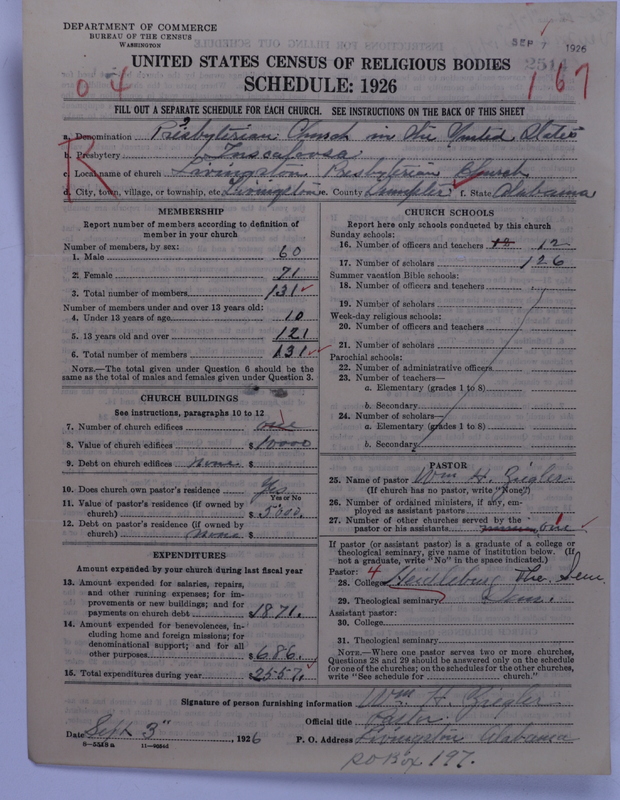 DEPARTMENT OF COMMERCE
BUREAU OF THE CENSUS
WASHINGTON
SEP 7 1926
2514
UNITED STATES CENSUS OF RELIGIOUS BODIES
SCHEDULE: 1926
0 4
167
FILL OUT A SEPARATE SCHEDULE FOR EACH CHURCH. SEE INSTRUCTIONS ON THE BACK OF THIS SHEET
R
a. Denomination Presbyterian Church in the United States
b. Presbytery Tuscaloosa
c. Local name of church Livingston Presbyterian Church
d. City, town, village, or township, etc. Livingston e. County Sumpter f. State Alabama
MEMBERSHIP
Report number of members according to definition of
member in your church
Number of members, by sex:
1. Male 60
2. Female 71
3. Total number of members 131
Number of members under and over 13 years old:
4. Under 13 years of age 10
5. 13 years old and over 121
6. Total number of members 131
NOTE.—The total given under Question 6 should be the
same as the total of males and females given under Question 3.
CHURCH BUILDINGS
See instructions, paragraphs 10 to 12
7. Number of church edifices one 1
8. Value of church edifices $ 10000
9. Debt on church edifices none $
10. Does church own pastor's residence Yes
Yes or No
11. Value of pastor's residence (if owned by
church) $ 5000.
12. Debt on pastor's residence (if owned by
church) none $
EXPENDITURES
Amount expended by your church during last fiscal year
13. Amount expended for salaries, repairs,
and other running expenses; for im-
provements or new buildings; and for
payments on church debt $1871.
14. Amount expended for benevolences, in-
cluding home and foreign missions; for
denominational support; and for all
other purposes $686.
15. Total expenditures during year $2557.
CHURCH SCHOOLS
Report here only schools conducted by this church
Sunday schools:
16. Number of officers and teachers 12 12
17. Number of scholars 126
Summer vacation Bible schools:
18. Number of officers and teachers
19. Number of scholars
Week-day religious schools:
20. Number of officers and teachers
21. Number of scholars
Parochial schools:
22. Number of administrative officers
23. Number of teachers—
a. Elementary (grades 1 to 8)
b. Secondary
24. Number of scholars—
a. Elementary (grades 1 to 8)
b. Secondary
PASTOR
25. Name of pastor Wm H. Ziegler
(If church has no pastor, write "None")
26. Number of ordained ministers, if any, em-
ployed as assistant pastors
27. Number of other churches served by the
pastor or his assistants one 1
If pastor (or assistant pastor) is a graduate of a college or
theological seminary, give name of institution below. (If
not a graduate, write "No" in the space indicated.)
Pastor: 4
28. College Heidelburg The. Sem.
29. Theological seminary Sem.
Assistant pastor:
30. College
31. Theological seminary
NOTE.—Where one pastor serves two or more churches,
Questions 28 and 29 should be answered only on the schedule
for one of the churches; on the schedules for the other churches,
write "See schedule for church."
Signature of person furnishing information Wm H. Ziegler
Official title Pastor.
Date Sept 3", 1926 P. O. Address Livingston Alabama
8—5518 a
P.O Box 197.